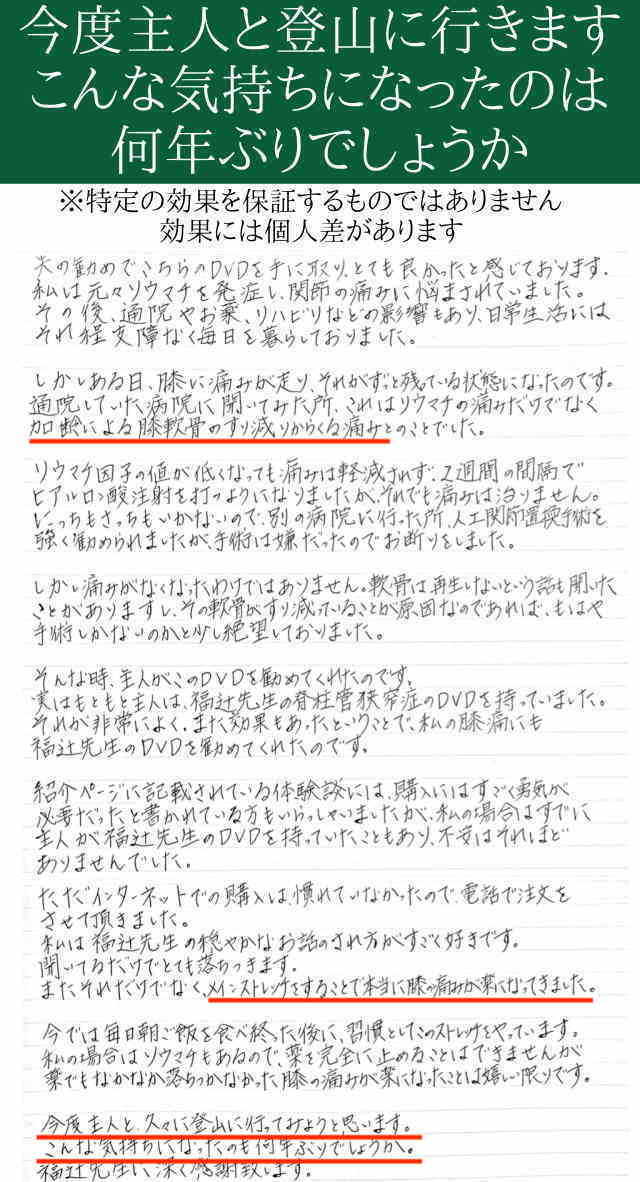 今度主人と登山に行きます
こんな気持ちになったのは
何年ぶりでしょうか
※特定の効果を保証するものではありません
効果には個人差があります
夫の勧めでこちらのDVDを手に取り、とても良かったと感じております。
私は元々リウマチを発症し、関節の痛みに悩まされていました。
その後、通院やお薬、リハビリなどの影響もあり、日常生活には
それ程支障なく毎日を暮らしておりました。
しかしある日、膝に痛みが走り、それがずっと残っている状態になったのです。
通院していた病院に聞いてみた所、これはリウマチの痛みだけでなく
加齢による膝軟骨のすり減りからくる痛みとのことでした。
リウマチ因子の値が低くなっても痛みは軽減されず、2週間の間隔で
ヒアルロン酸注射を打つようになりましたが、それでも痛みは治りません。
にっちもさっちもいかないので、別の病院に行った所、人工関節置換手術を
強く勧められましたが、手術は嫌だったのでお断りをしました。
しかし痛みがなくなったわけではありません。軟骨は再生しないという話も聞いた
ことがありますし、その軟骨がすり減っていることが原因なのであれば、もはや
手術しかないのかと少し絶望しておりました。
そんな時、主人がこのDVDを勧めてくれたのです。
実はもともと主人は、福辻先生の脊柱管狭窄症のDVDを持っていました。
それが非常によく、また効果もあったということで、私の膝痛にも
福辻先生のDVDを勧めてくれたのです。
紹介ページに記載されている体験談には、購入にはすごく勇気が
必要だったと書かれている方もいらっしゃいましたが、私の場合はすでに
主人が福辻先生のDVDを持っていたこともあり、不安はそれほど
ありませんでした。
ただインターネットでの購入は、慣れていなかったので、電話で注文を
させて頂きました。
私は福辻先生の穏やかなお話のされ方がすごく好きです。
聞いてるだけでとても落ちつきます。
またそれだけでなく、メインストレッチをすることで本当に膝の痛みが楽になってきました。
今では毎日朝ご飯を食べ終った後に、習慣としてこのストレッチをやっています。
私の場合はリウマチもあるので、薬を完全に止めることはできませんが
薬でもなかなか落ちつかなかった膝の痛みが楽になったことは嬉しい限りです。
今度主人と、久々に登山に行ってみようと思います。
こんな気持ちになったのも何年ぶりでしょうか。
福辻先生に深く感謝致します。